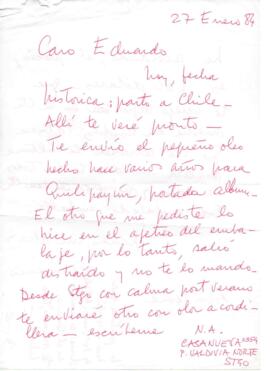 27 Enero 84
Caro Eduardo
hoy, fecha
histórica: parto a Chile -
Allí te veré pronto -
Te envío el pequeño oleo
hecho hace varios años para
Quilapayún, portada album -
El otro que me pediste lo
hice en el ajetreo del emba-
laje, por lo tanto, salió
distraído y no te lo mando -
Desde Stgo con calma post verano
te enviaré otro con olor a cordi-
llera - escríbeme
N.A.
CASANUEVA
P. VALDIVIA NORTE
STGO